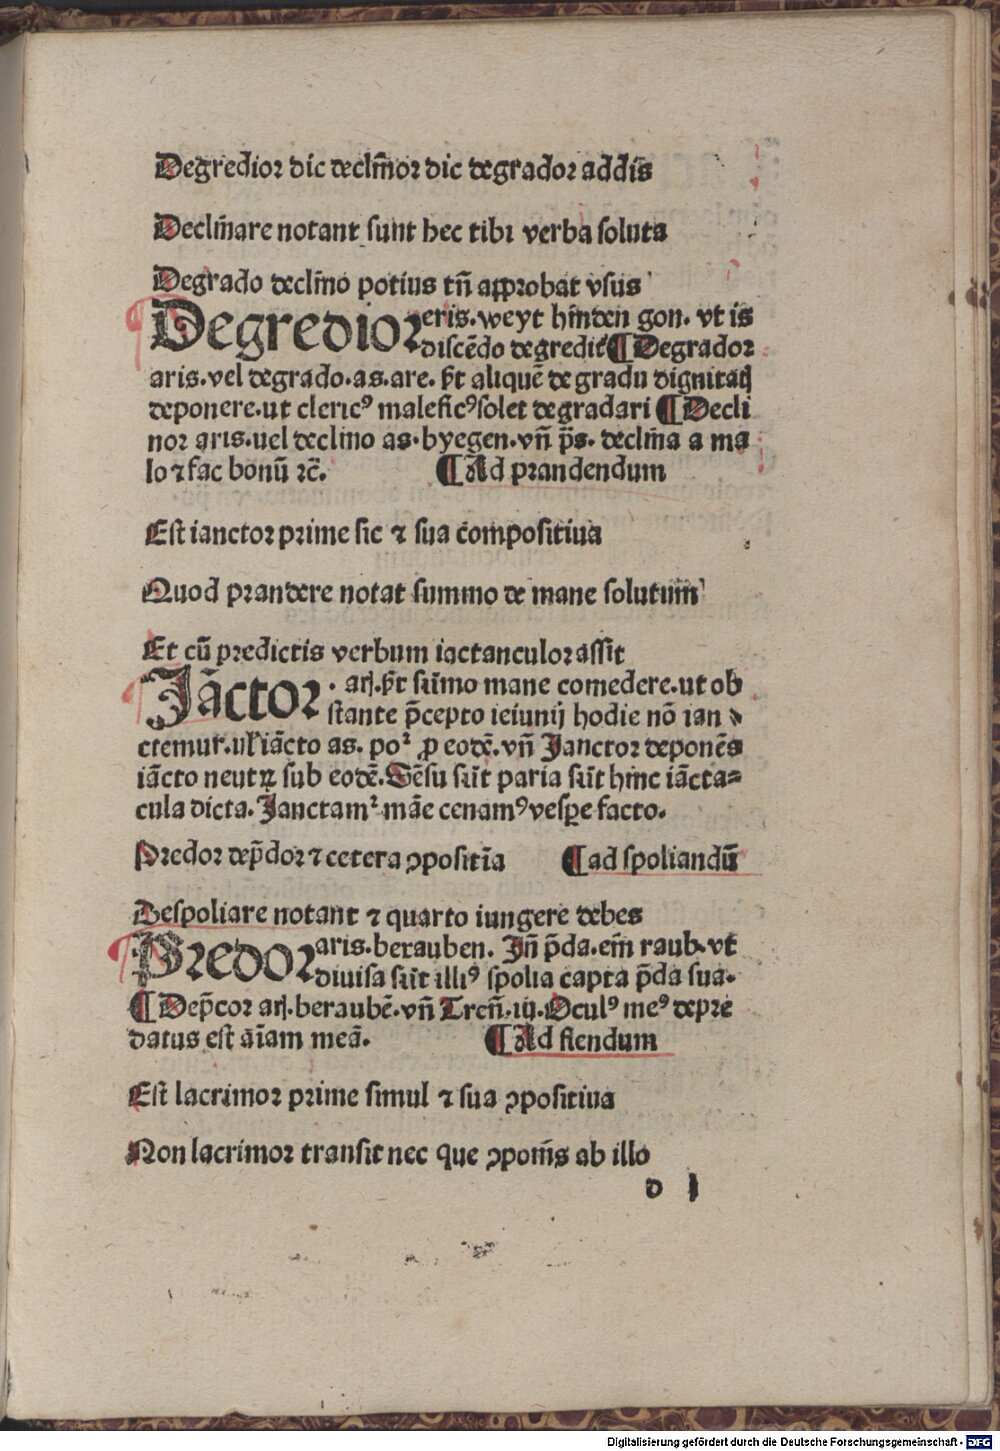 Degredior dic declīnor dic degrador addis
Declīnare notant ſunt hec tibi verba ſoluta
Degrado declīno potius tn̄ approbat vſus
Degredior eris. weyt hīnden gon. vt is
diſcēdo degredit̄ ¶ Degrador
aris. vel degrado. as. are. aliquē de gradu dignitatꝭ
deponere. ut clericꝰ maleficꝰ ſolet degradari ¶ Decli
nor aris. uel declino as. byegen. vn̄ p̄s. declīna a ma
lo ⁊ fac bonū ⁊c̄. ¶ Ad prandendum
Eſt ianctor prime ſic ⁊ ſua cōmpoſitiua
Quod prandere notat ſummo de mane ſolutum
Et cū predictis verbum iactanculor aſſit
Jāctor. arꝭ. ſūmo mane comedere. ut ob
ſtante p̄cepto ieiunij hodie nō ian
ctemur. iācto as. ꝓ eodē. vn̄ Janctor deponēs
iācto neutꝝ ſub eodē. Sēſu ſūt paria ſūt hinc iācta⸗
cula dicta. Janctamꝰ māe cenamꝰ veſꝑe facto.
Predor dep̄dor ⁊ cetera ꝯpoſitīa ¶ ad ſpoliandū
Deſpoliare notant ⁊ quarto iungere debes
Predor aris. berauben. Jn̄ p̄da. em̄ raub. vt
diuiſa ſūt illiꝰ ſpolia capta p̄da ſua.
¶ Dep̄cor arꝭ. beraubē. vn̄ Tren̄. iij. Oculꝰ meꝰ depre
datus eſt āīam meā. ¶ Ad flendum
Eſt lacrimor prime ſimul ⁊ ſua ꝯpoſitiua
Non lacrimor tranſit nec que ꝯpom̄s ab illo
d 1
Digitalisierung gefördert durch die Deutsche Forschungsgemeinschaft - DFG